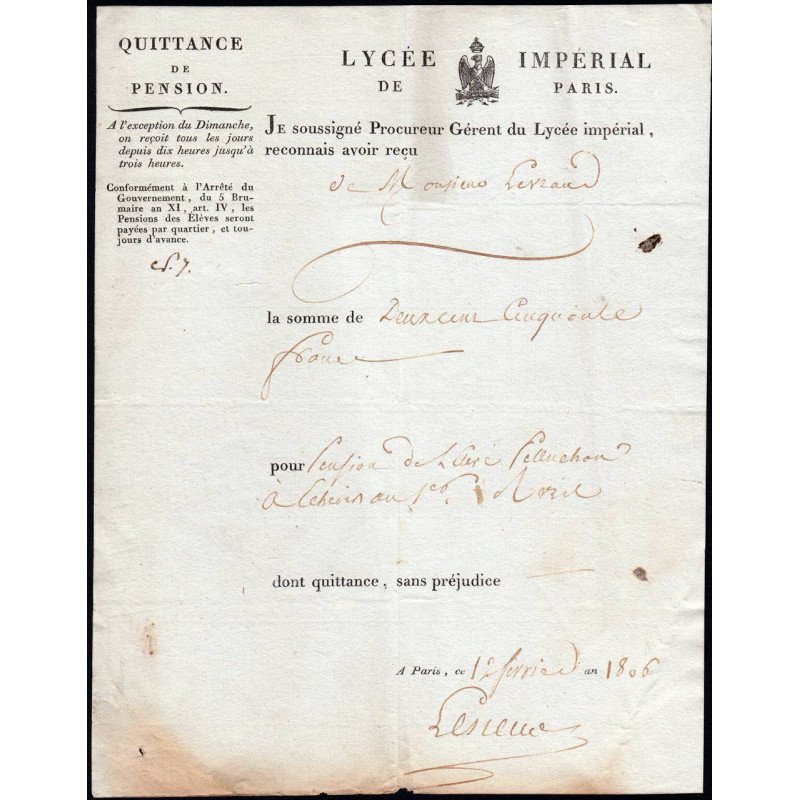 QUITTANCE
DE
PENSION.
A l'exception du Dimanche,
on reçoit tous les jours
depuis dix heures jusqu'à
trois heures.
Conformément à l'Arrêté du
Gouvernement, du 5 Bru-
maire an XI, art. IV, les
Pensions des Élèves seront
payées par quartier, et tou-
jours d'avance.
LYCÉE IMPÉRIAL
DE PARIS.
JE soussigné Procureur Gérent du Lycée impérial,
reconnais avoir reçu
de Monsieur
la somme de Deux cent Cinquante
francs
pour Pension de
à au 1er Avril
dont quittance, sans préjudice
A Paris, ce 12 février an 1806